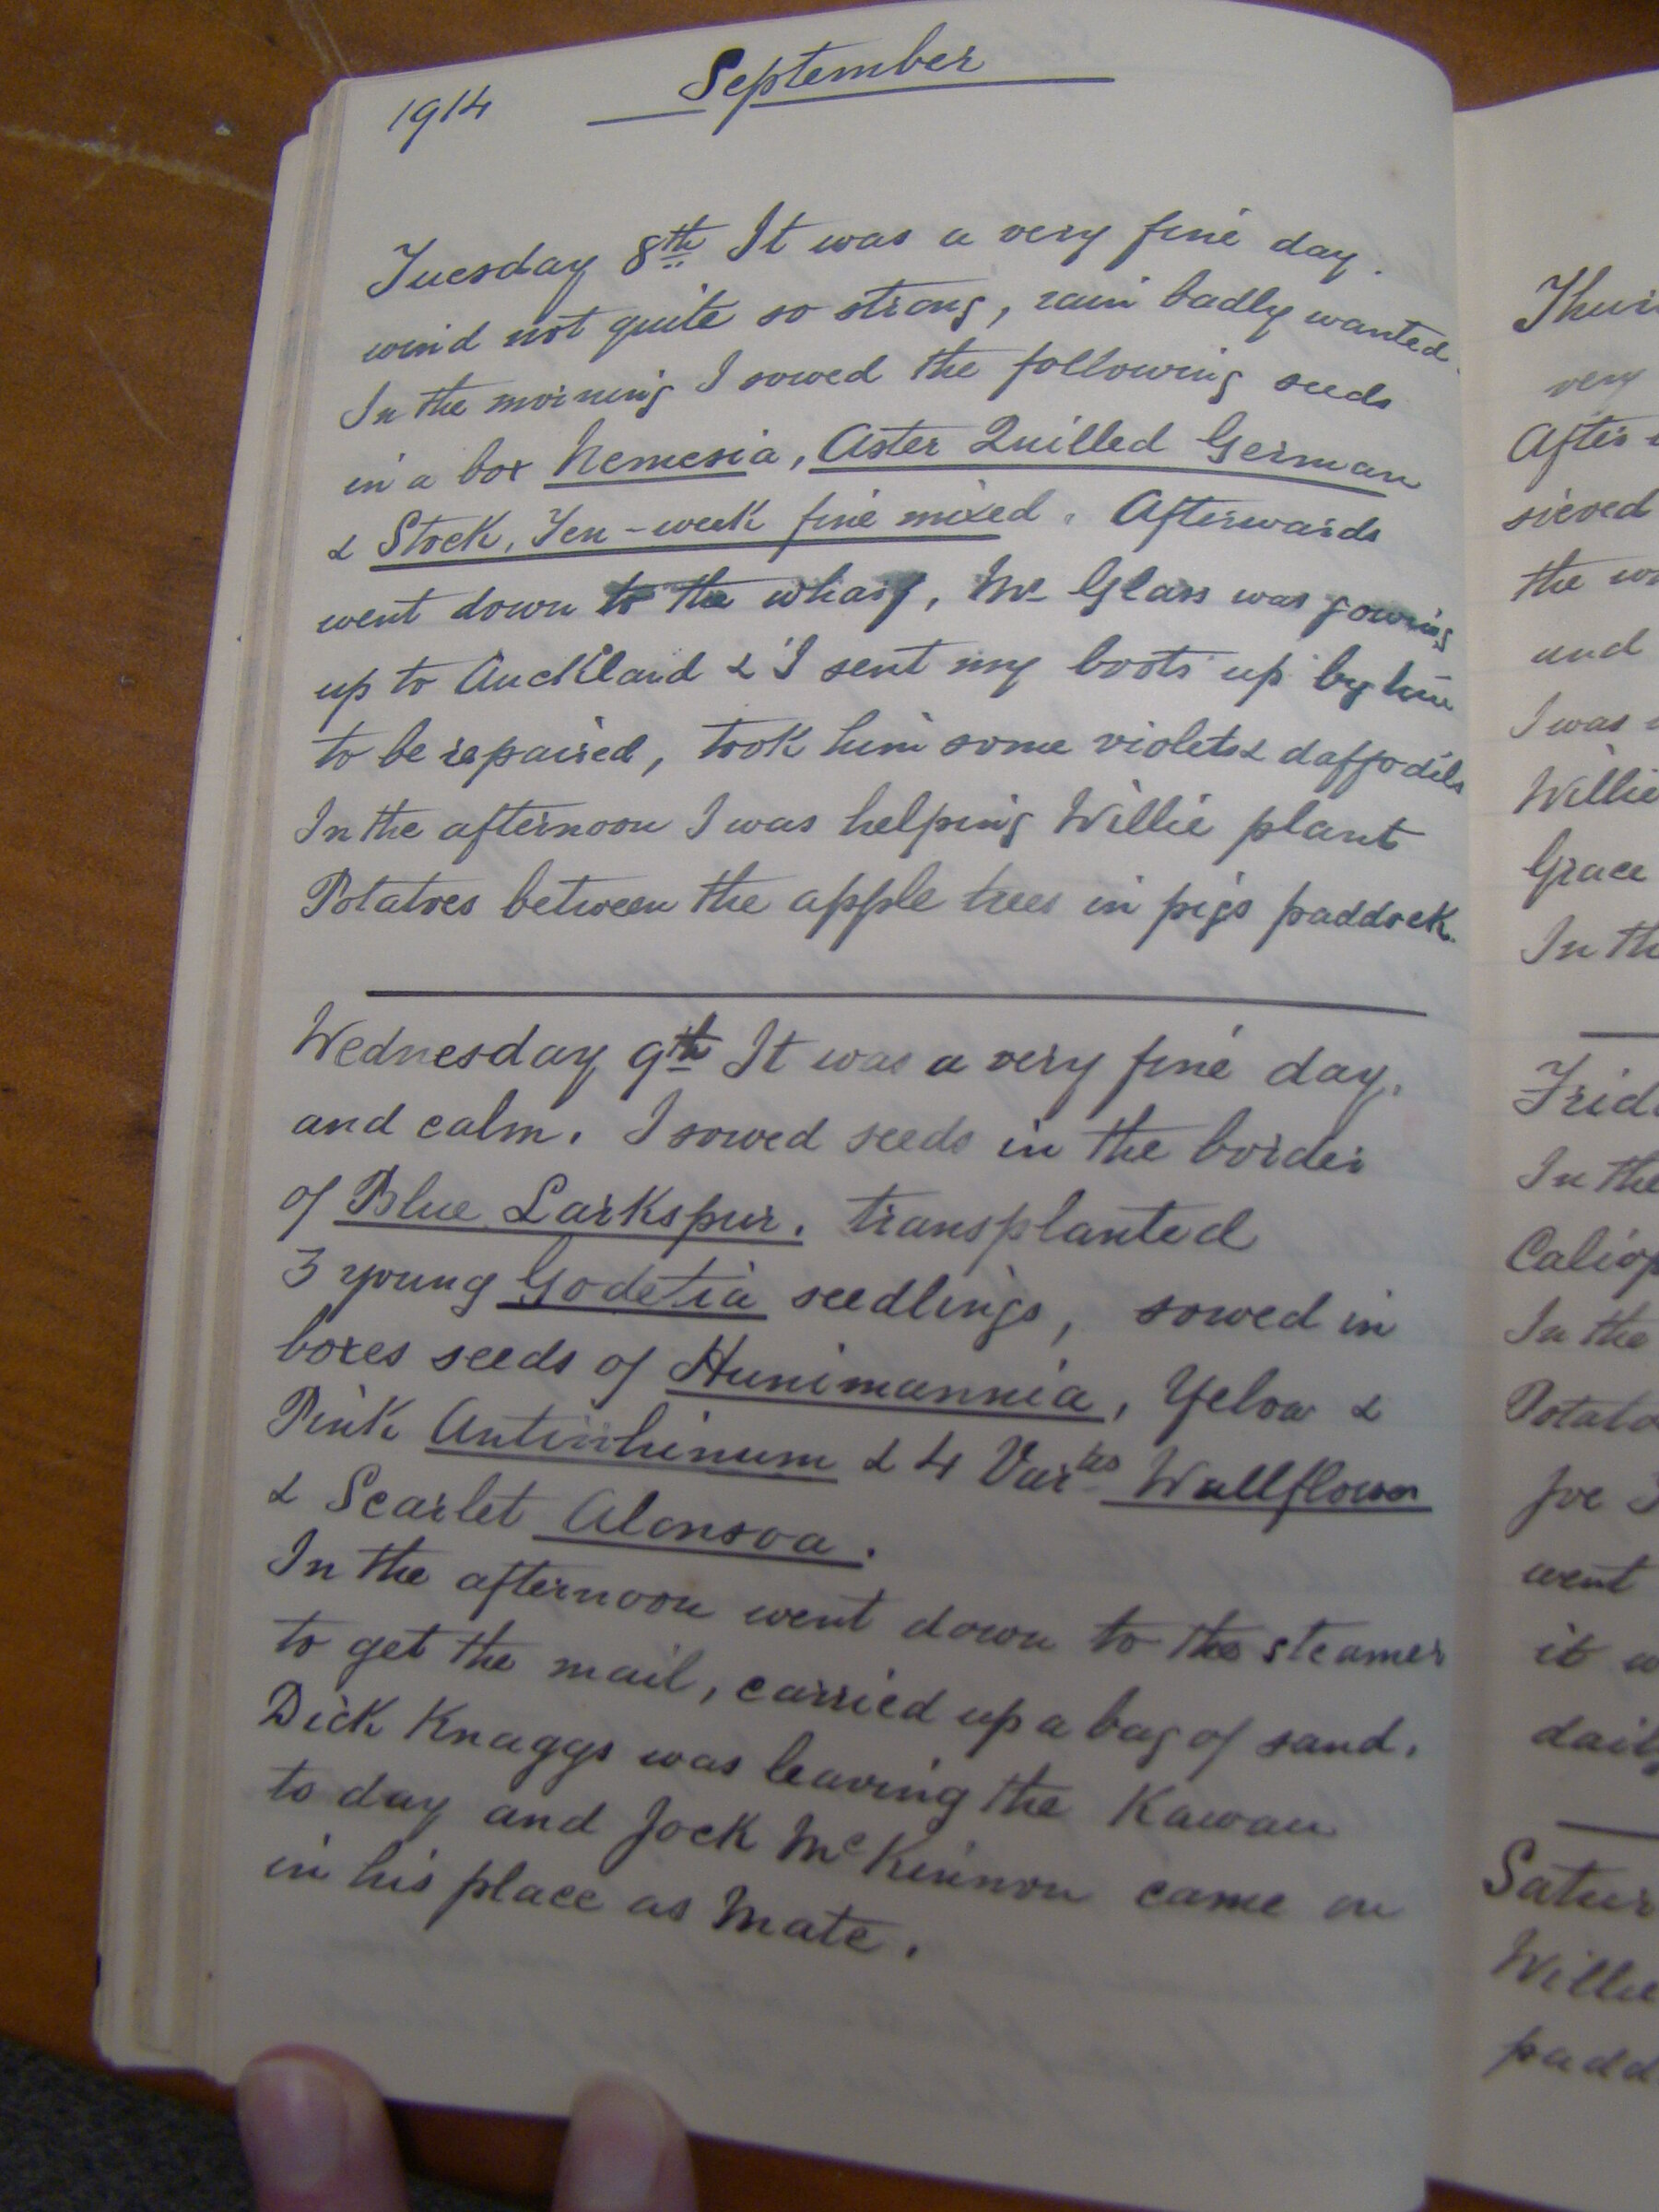 1914 September
Tuesday 8th It was a very fine day.
wind not quite so strong, rain badly wanted.
In the morning I sowed the following seeds
in a box Nemesia, Aster Quilled German
& Stock, Ten-week fine mixed. Afterwards
went down to the wharf, Mr Glass was gowing
up to Auckland & I sent my boots up by him
to be repaired, took him some violets & daffodils
In the afternoon I was helping Willie plant
Potatoes between the apple trees in pigs paddock.
Wednesday 9th It was a very fine day.
and calm. I sowed seeds in the border
of Blue Larkspur. transplanted
3 young Godetia seedlings, sowed in
boxes seeds of Hunimannia, Yelow &
Pink Antirrhinum & 4 Var.tes Wallflower
& Scarlet Alonsoa.
In the afternoon went down to the steamer
to get the mail, carried up a bag of sand.
Dick Knaggs was leaving the Kawau
to day and Jock McKinnon came on
in his place as Mate.
very
After
sieved
the
and
I was
Willie
Grace
In the
In the
went
it
Willie